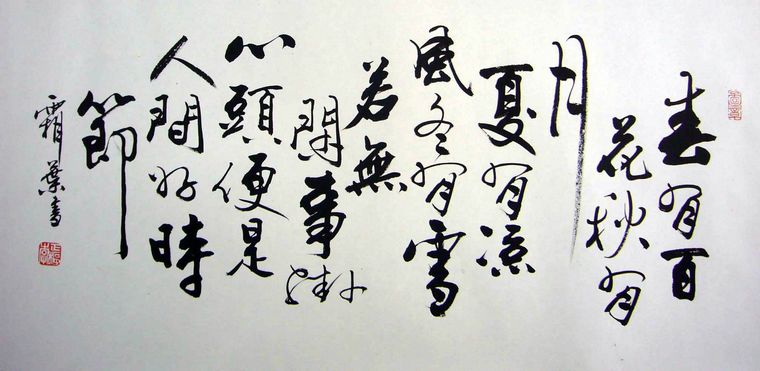 春有百
花秋有
月
夏有涼
風冬有雪
若無
閑事挂
心頭便是
人間好時
節
霜葉書